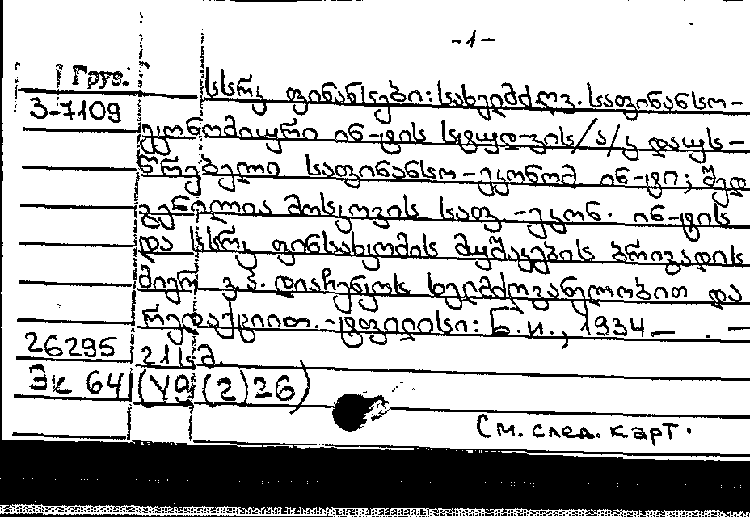 -1-
Груз.
3-7109
სსრკ ფინანსები: სახელმძღვ. საფინანსო-
ეკონომიური ინ-ტის სტუდ-ტის/ა/კ დაუს-
წრებელი საფინანსო-ეკონომ ინ-ტი; შედ
გენილია მოსკოვის საფ-ეკონ. ინ-ტის
და სსრკ ფინსახკომის მუშაკების ბრიგადის
მიერ ვ.პ. დიაჩენკოს ხელმძღვანელობით და
რედაქციით. -ტფილისი: Б.и., 1934 — . —
26295 21 სმ.
Эк 64 (У9(2)26)
См. след. карт.